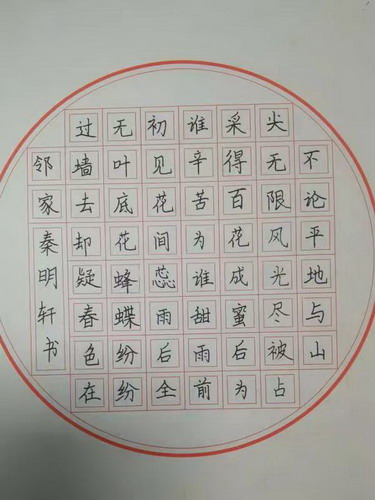 不论平地与山
尖无限风光尽被占
采得百花成蜜后为
谁辛苦为谁甜雨前
初见花间蕊雨后全
无叶底花蜂蝶纷纷
过墙去却疑春色在
邻家
秦明轩书